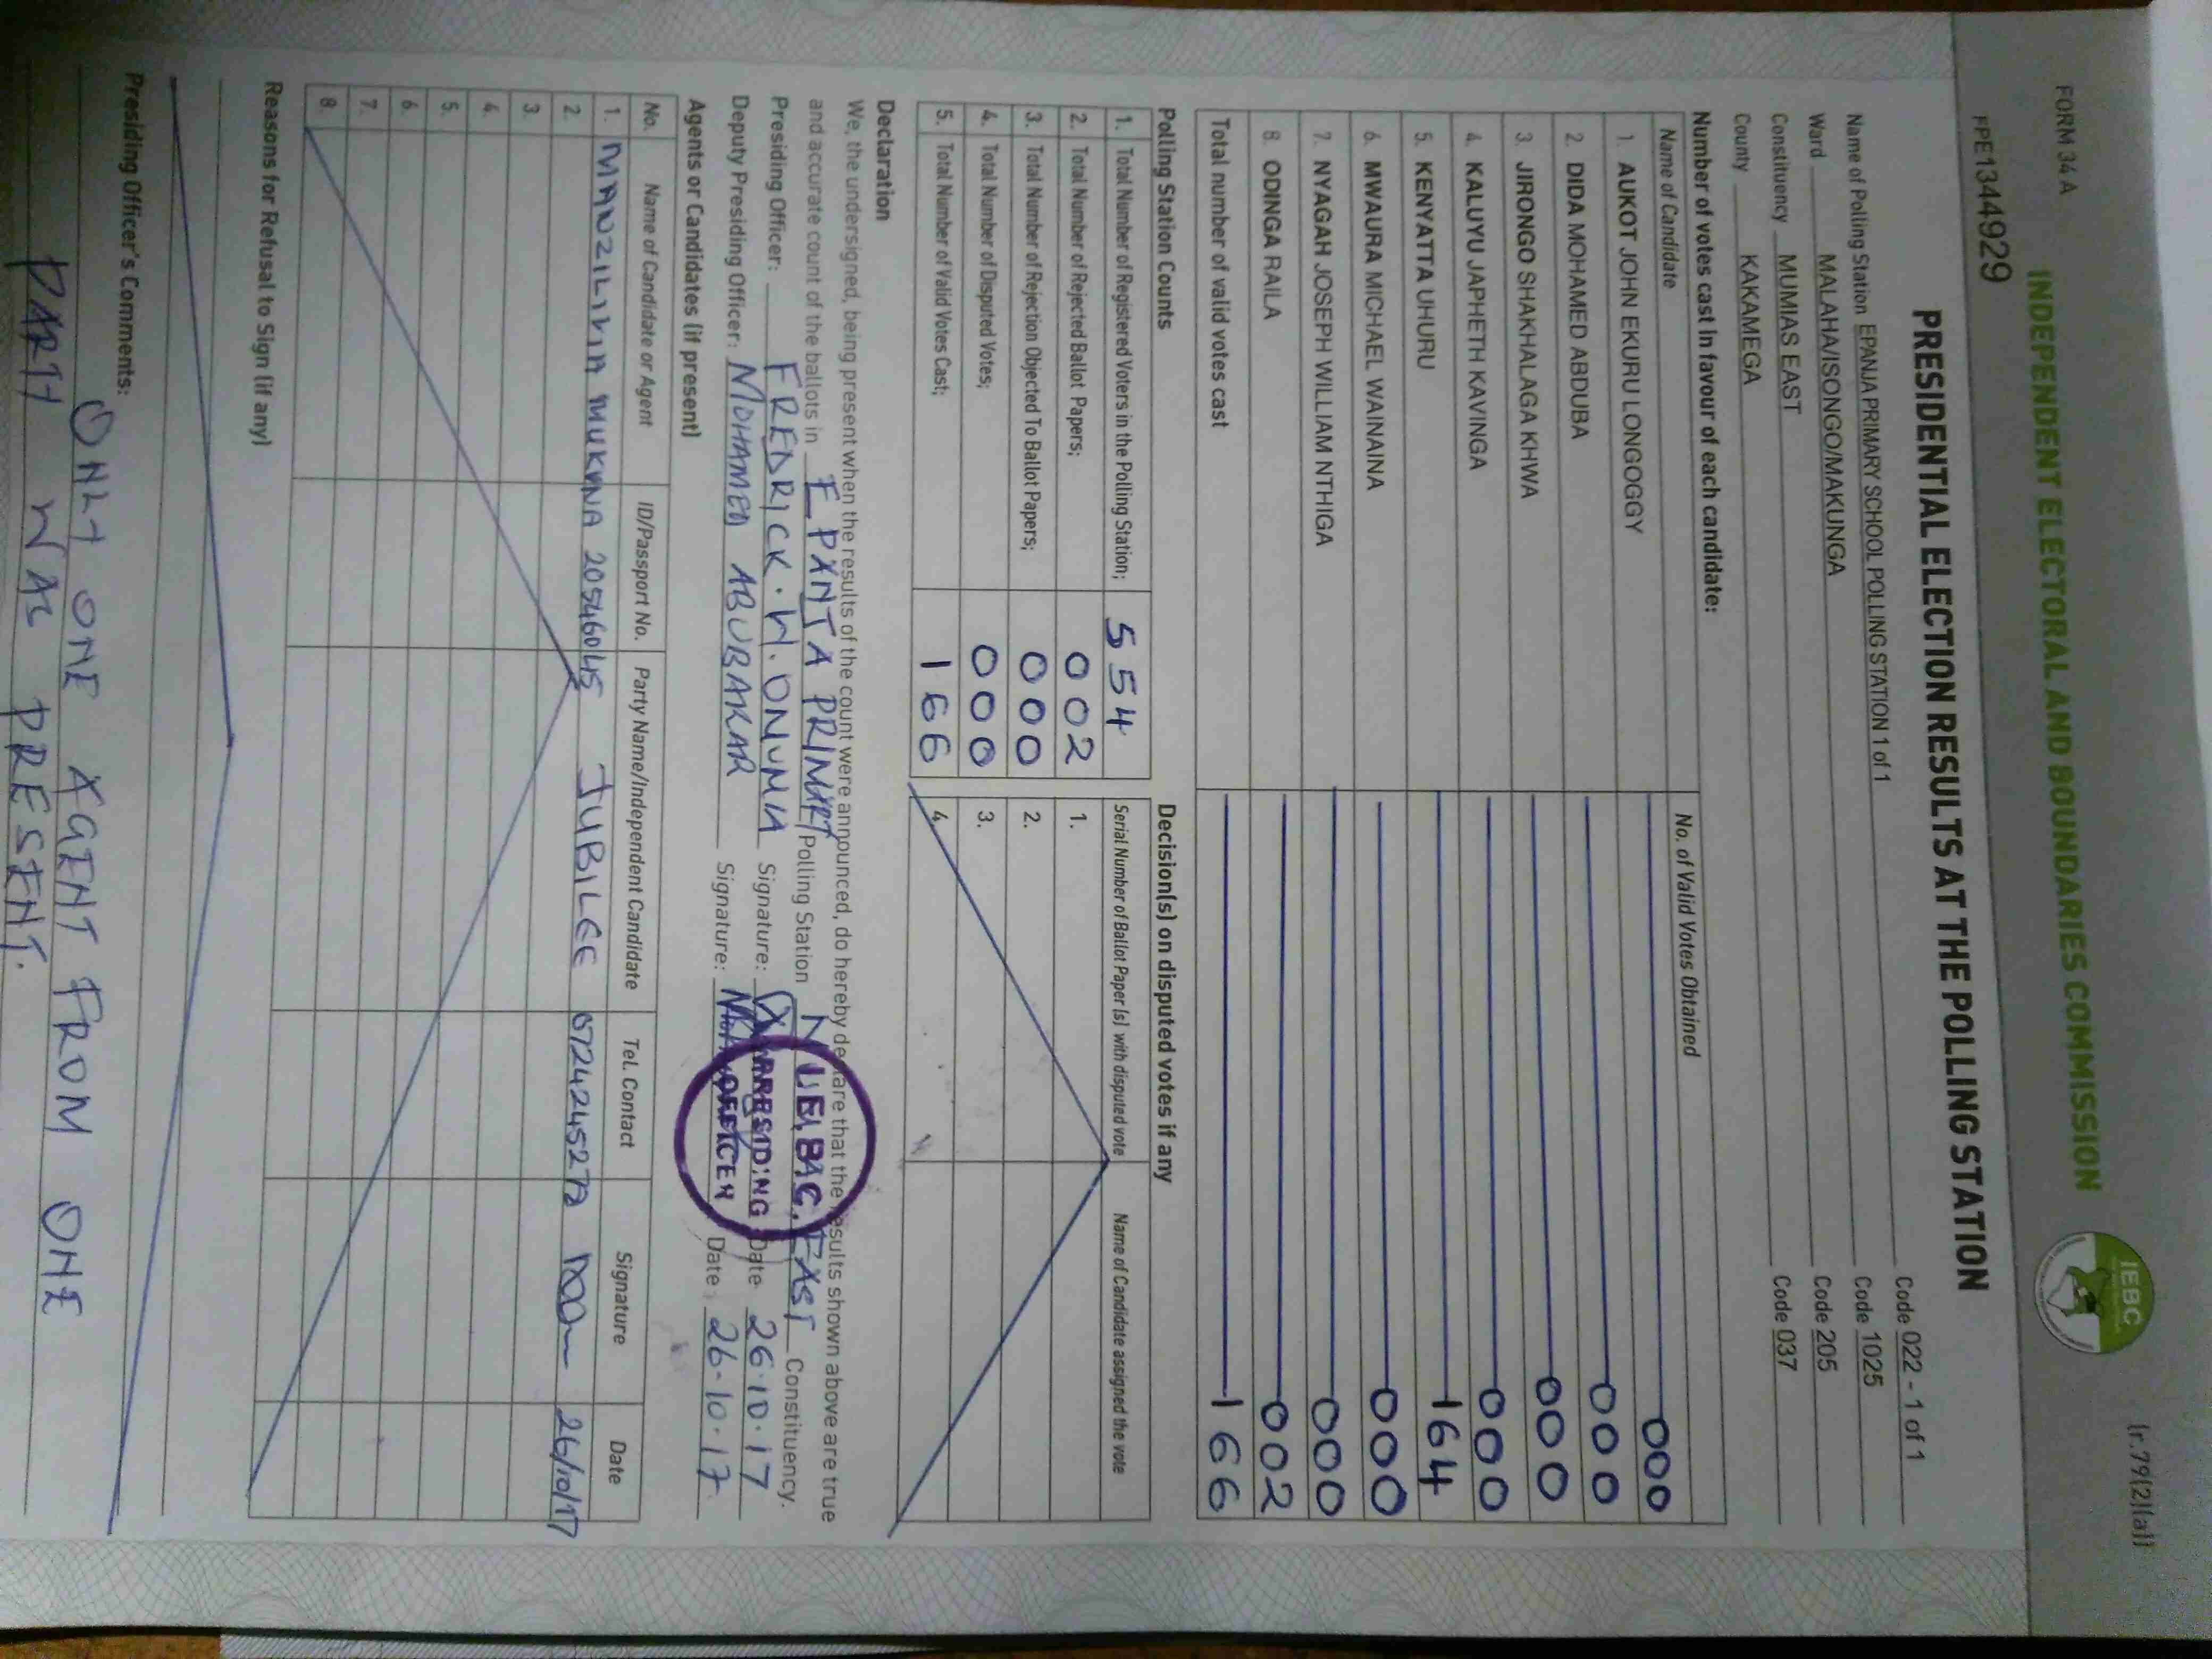 (r.79(2)(a))
FORM 34 A
INDEPENDENT ELECTORAL AND BOUNDARIES COMMISSION
IEBC
FPE1344929
PRESIDENTIAL ELECTION RESULTS AT THE POLLING STATION
Name of Polling Station EPANJA PRIMARY SCHOOL POLLING STATION 1 of 1 Code 022 - 1 of 1
Ward MALAHA/ISONGO/MAKUNGA Code 1025
Constituency MUMIAS EAST Code 205
County KAKAMEGA Code 037
Number of votes cast in favour of each candidate:
Name of Candidate No. of Valid Votes Obtained
1. AUKOT JOHN EKURU LONGOGGY 000
2. DIDA MOHAMED ABDUBA 000
3. JIRONGO SHAKHALAGA KHWA 000
4. KALUYU JAPHETH KAVINGA 000
5. KENYATTA UHURU 164
6. MWAURA MICHAEL WAINAINA 000
7. NYAGAH JOSEPH WILLIAM NTHIGA 000
8. ODINGA RAILA 002
Total number of valid votes cast 166
Polling Station Counts Decision(s) on disputed votes if any
1. Total Number of Registered Voters in the Polling Station; 554 Serial Number of Ballot Paper (s) with disputed vote Name of Candidate assigned the vote
2. Total Number of Rejected Ballot Papers; 002 1.
3. Total Number of Rejection Objected To Ballot Papers; 000 2.
4. Total Number of Disputed Votes; 000 3.
5. Total Number of Valid Votes Cast; 166 4.
Declaration
We, the undersigned, being present when the results of the count were announced, do hereby declare that the results shown above are true
and accurate count of the ballots in EPANJA PRIMARY Polling Station EAST Constituency.
Presiding Officer: FREDRICK . W. Signature: Date 26.10.17
Deputy Presiding Officer: MOHAMED ABUBAKAR Signature: Date: 26-10-17
PRESIDING
OFFICER
Agents or Candidates (if present)
No. Name of Candidate or Agent ID/Passport No. Party Name/Independent Candidate Tel. Contact Signature Date
1. 20546045 JUBILEE 26/10/17
2.
3.
4.
5.
6.
7.
8.
Reasons for Refusal to Sign (if any)
Presiding Officer's Comments:
ONLY ONE AGENT FROM ONE
PARTY WAS PRESENT.